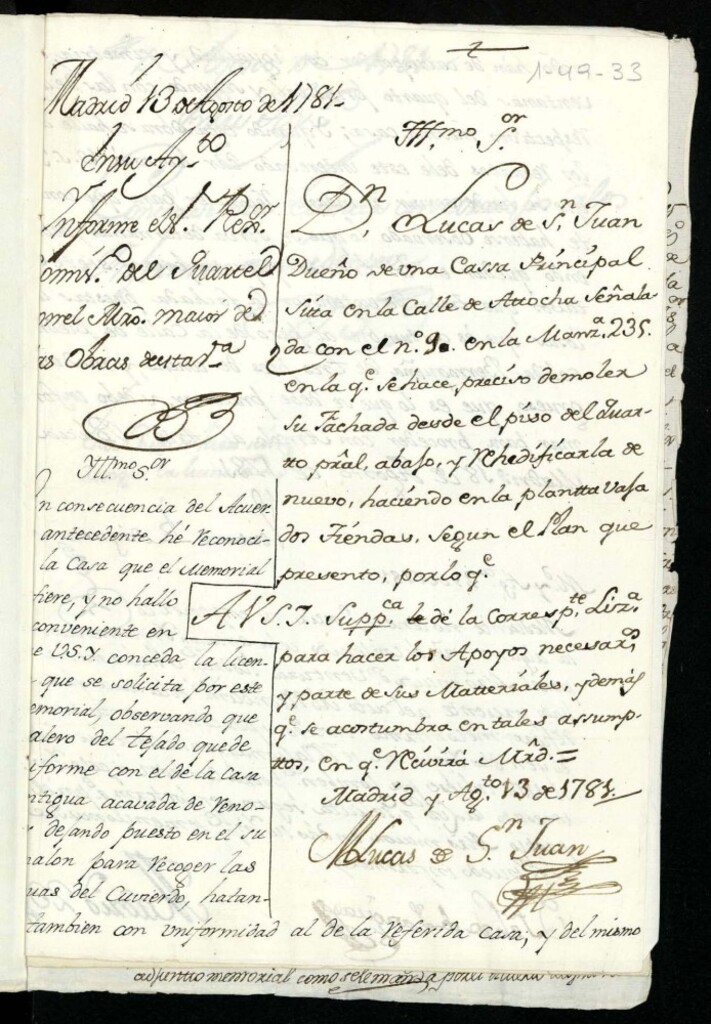 1-49-33
Madrid 13 de Agosto de 1781.
En su Ay.to
Informe el S.r Rex.or
Comis.o del Quartel
on el Mro. maior de
as Obras de esta V.a
Ill.mo S.or
n consecuencia del Acuer
antecedente hé reconoci-
la Casa que el Memorial
fiere, y no hallo
conveniente en
e V.S.Y. conceda la licen-
que se solicita por este
emorial, observando que
alero del tejado quede
iforme con el de la Casa
ntigua acavada de reno-
dejando puesto en el su
nalon para recoger las
uas del Cuvierdo, hatan-
tambien con vniformidad al de la referida casa, y del mismo
Ill.mo S.or
D.n Lucas de S.n Juan
Dueño de una Cassa Principal
sita en la Calle de Attocha señala-
da con el n.o 9. en la Manz.a 235.
en la q.e se hace preciso demoler
su Fachada desde el piso del Quar-
tto pral, abajo, y rehedificarla de
nuevo, haciendo en la plantta vaja
dos Tiendas, segun el Plan que
presento, por lo q.e
A V.S.I. Supp.ca le dé la Corresp.te Liz.a
para hacer los Apoyos necesar.s
y parte de sus Matteriales, y demás
q.e se acostumbra en tales assump-
ttos, en q.e recivirá Mrd.=
Madrid y Ag.to 13 de 1781.
Lucas de S.n Juan
adjuntto memorial como se le manda por el